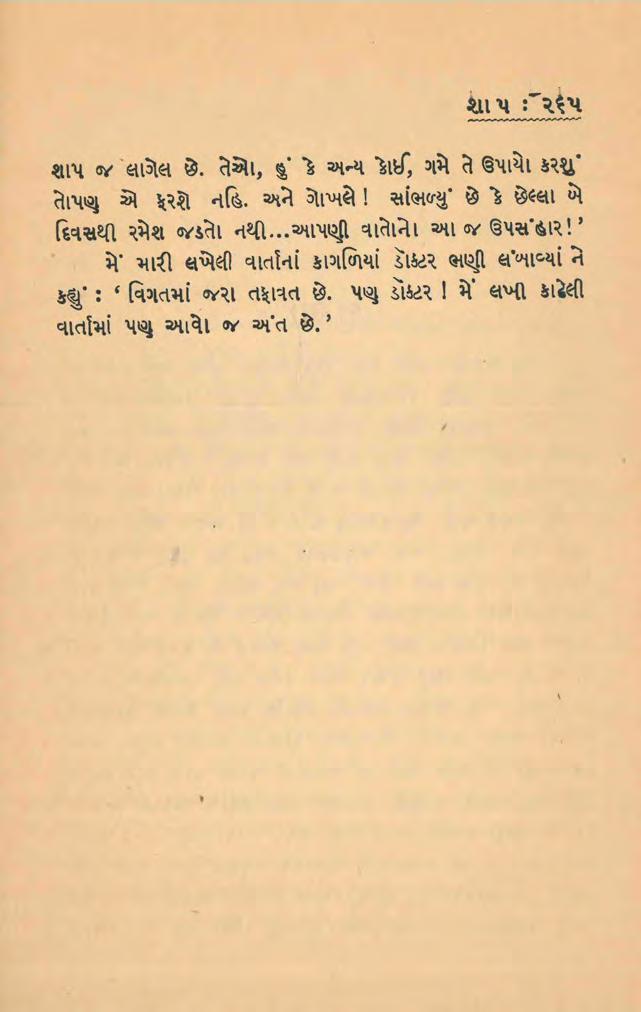 શાપ : ૨૬૫
શાપ જ લાગેલ છે. તેઓ, હું કે અન્ય કોઈ, ગમે તે ઉપાયો કરશું
તોપણ એ ફરશે નહિ. અને ગોખલે ! સાંભળ્યું છે કે છેલ્લા બે
દિવસથી રમેશ જડતો નથી...આપણી વાતોનો આ જ ઉપસંહાર!’
મેં મારી લખેલી વાર્તાનાં કાગળિયાં ડૉક્ટર ભણી લંબાવ્યાં ને
કહ્યું : ‘ વિગતમાં જરા તફાવત છે. પણ ડૉક્ટર ! મેં લખી કાઢેલી
વાર્તામાં પણ આવો જ અંત છે.’